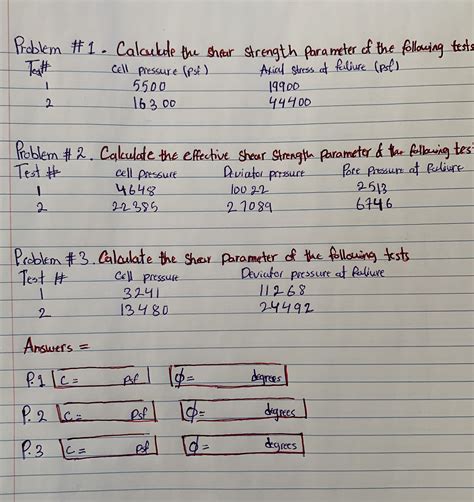 Problem #1. Calculate the shear strength parameter of the following tests
Test# Cell pressure (psf) Axial stress at failure (psf)
1 5500 19900
2 16300 44400
Problem #2. Calculate the effective shear strength parameter of the following tes
Test # Cell pressure Deviator pressure Pore Pressure at failiure
1 4648 10022 2513
2 22385 27089 6746
Problem #3. Calculate the shear parameter of the following tests
Test # Cell pressure Deviator pressure at failiure
1 3241 11268
2 13480 24492
Answers =
P.1 C= psf ϕ= degrees
P.2 C= psf ϕ= degrees
P.3 C= psf ϕ= degrees